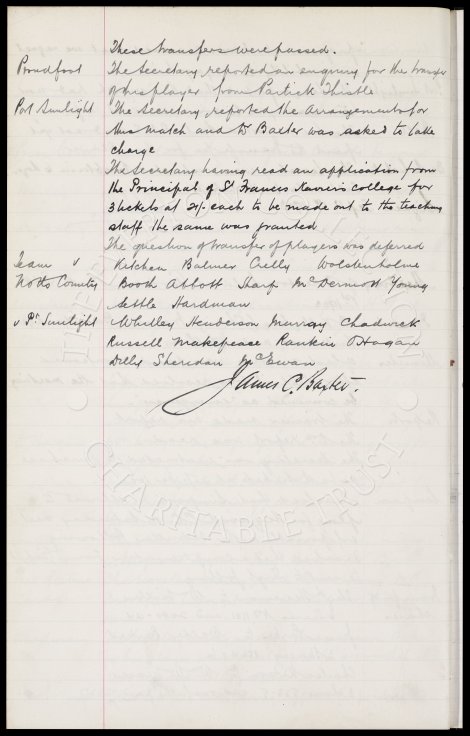 These transfers were passed.
Proudfoot The Secretary reported an enquiry for the transfer
of this player from Partick Thistle
Port Sunlight The Secretary reported the arrangements for
this match and Dr Baxter was asked to take
charge
The Secretary having read an application from
the Principal of St Francis Xavier's college for
3 tickets at 21/- each to be made out to the teaching
staff the same was granted
The question of transfer of players was deferred
Team v Kitchen Balmer Crelly Wolstenholme
Notts County Booth Abbott Sharp McDermott Young
Settle Hardman
v Pt Sunlight Whitley Henderson Murray Chadwick
Russell Makepeace Rankin O'Hagan
Dilly Sheridan McEwan
James C. Baxter.
CHARITABLE TRUST